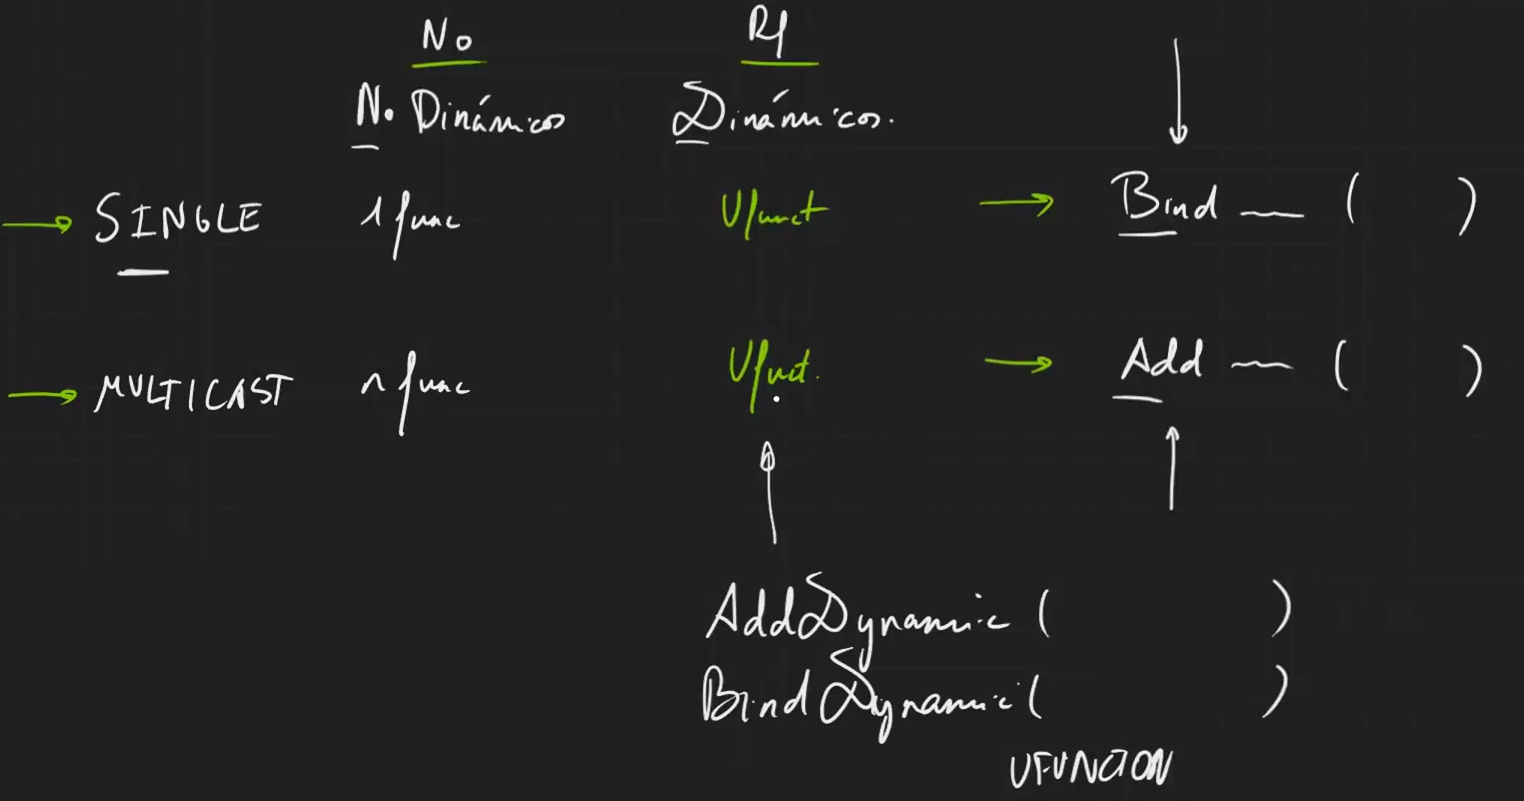 No Rf
No Dinámicos Dinámicos.
SINGLE 1 func Ufunct Bind — ( )
MULTICAST n func Ufunct. Add — ( )
AddDynamic ( )
BindDynamic ( )
UFUNCTION